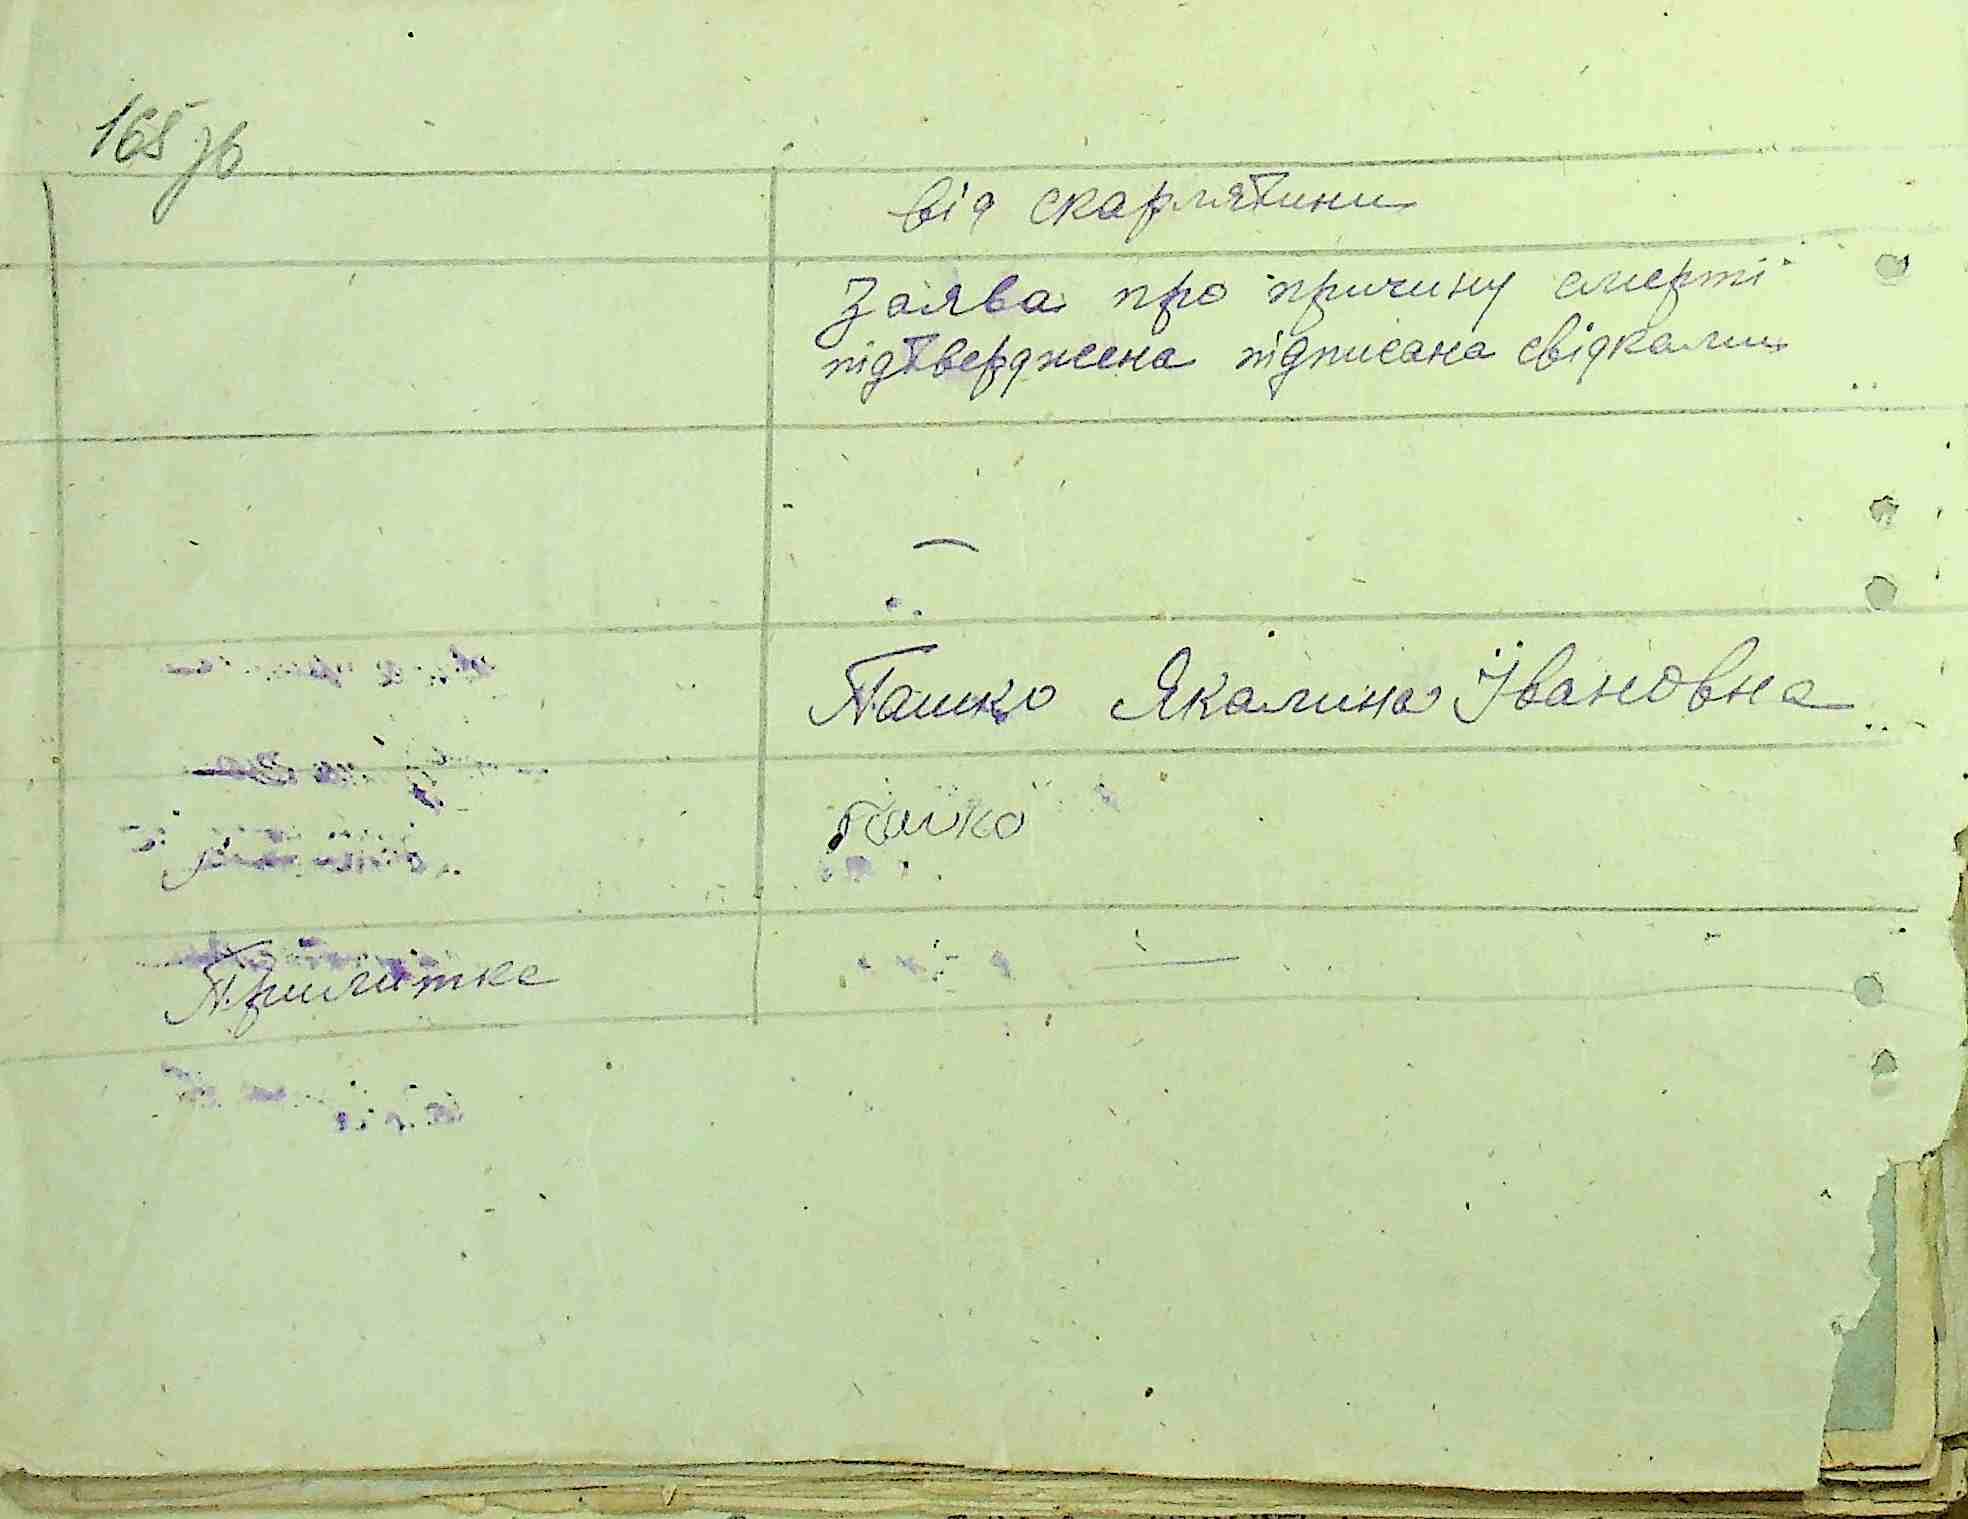 165 зв
від скарлятини
Заява про причину смерті
підтверджена підписана свідками
—
Пашко Якалина Івановна
Пашко
Примітка —